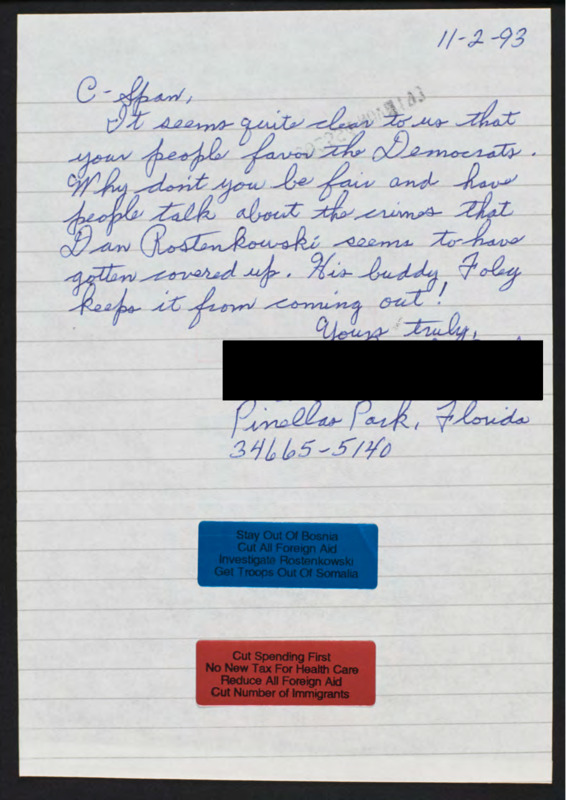 11-2-93
C-Span,
It seems quite clear to us that
your people favor the Democrats.
Why don't you be fair and have
people talk about the crimes that
Dan Rostenkowski seems to have
gotten covered up. His buddy Foley
keeps it from coming out!
Yours truly,
Pinellas Park, Florida
34665-5140
Stay Out Of Bosnia
Cut All Foreign Aid
Investigate Rostenkowski
Get Troops Out Of Somalia
Cut Spending First
No New Tax For Health Care
Reduce All Foreign Aid
Cut Number of Immigrants